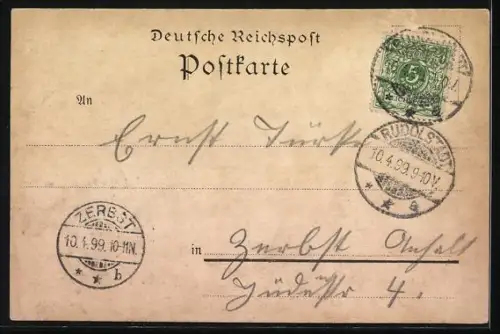 Deutsche Reichspost
Postkarte
An
5
Ernst Türk
RUDOLSTADT
10.4.99.9-10V.
* * a
ZERBST
10.4.99.10-11N.
* * b
in Zerbst Anhalt
Jüdestr 4.